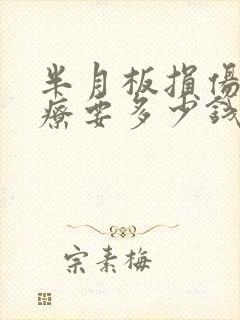 半月板損傷
療要多少錢
宗素梅